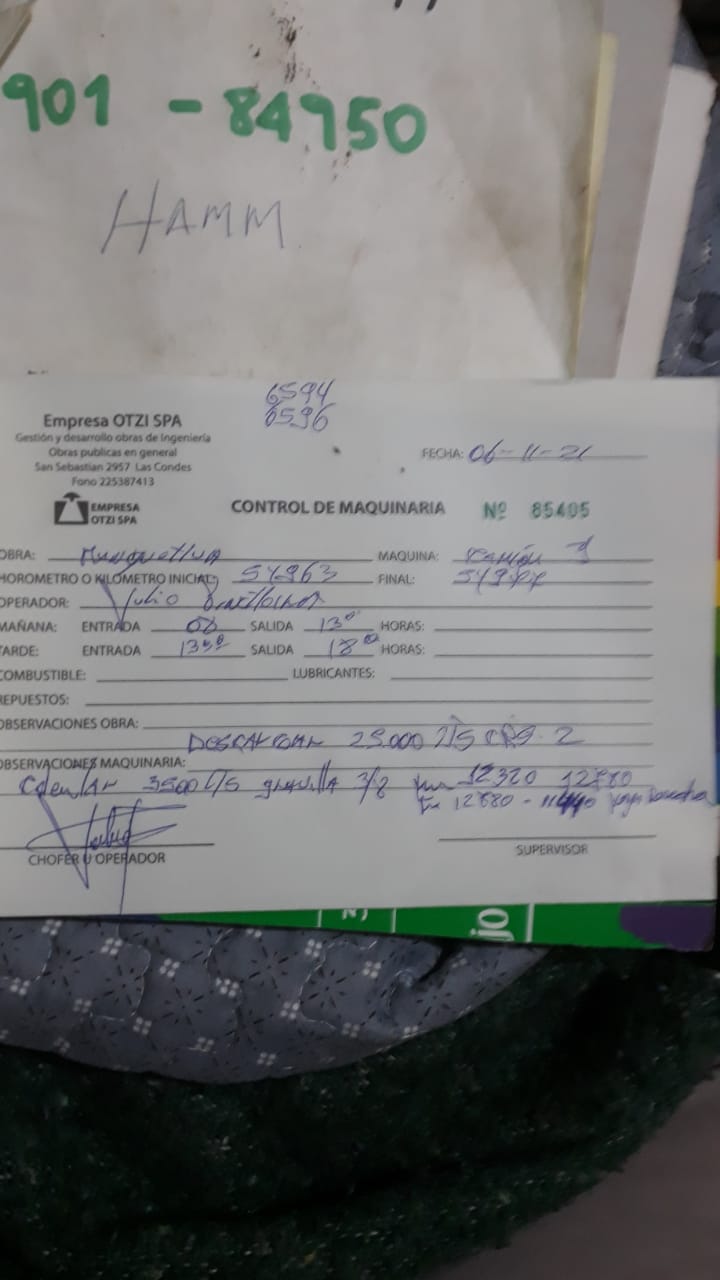 901 - 84950
HAMM
6594
6596
Empresa OTZI SPA
Gestión y desarrollo obras de Ingeniería
Obras publicas en general
San Sebastian 2957 Las Condes
Fono 225387413
FECHA: 06-11-21
EMPRESA
OTZI SPA
CONTROL DE MAQUINARIA Nº 85405
OBRA: MAQUINA: Camión
HOROMETRO O KILOMETRO INICIAL: 54963 FINAL:
OPERADOR: Julio
MAÑANA: ENTRADA 08 SALIDA 13⁰⁰ HORAS:
TARDE: ENTRADA SALIDA 18⁰⁰ HORAS:
COMBUSTIBLE: LUBRICANTES:
REPUESTOS:
OBSERVACIONES OBRA:
25.000 2
OBSERVACIONES MAQUINARIA:
3500 gravilla 3/8 12320 12880
12880 -
CHOFER U OPERADOR
SUPERVISOR
jo